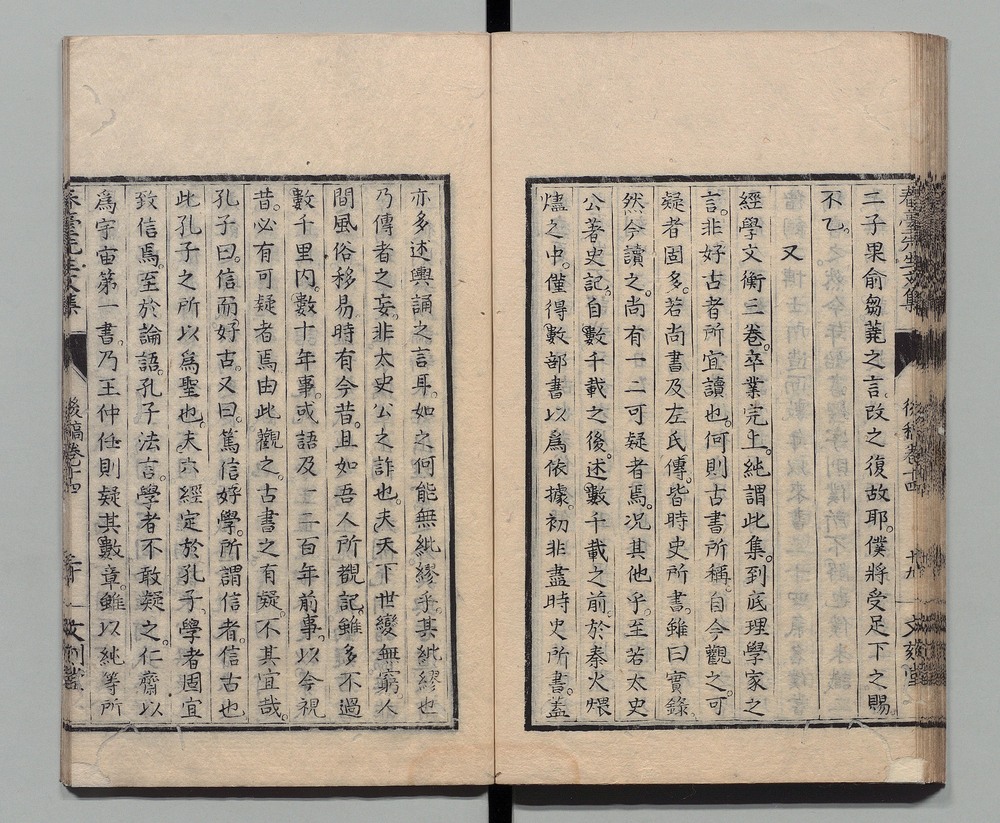 二子果俞芻蕘之言。改之復故耶。僕將受足下之賜。
不乙。
又
經學文衡三巻。卒業完上。純謂此集。到底理學家之
言。非好古者所宜讀也。何則古書所稱。自今觀之。可
疑者固多。若尚書及左氏傳。皆時史所書。雖曰實錄。
然今讀之。尚有一二可疑者焉。况其他乎。至若太史
公著史記。自數千載之後。述數千載之前。於秦火煨
燼之中。僅得數部書以爲依據。初非盡時史所書。蓋
亦多述輿誦之言耳。如之何能無紕繆乎。其紕繆也
乃傳者之妄。非太史公之詐也。夫天下世變無窮。人
間風俗移易。時有今昔。且如吾人所覩記。雖多不過
數千里内。數十年事。或語及一二百年前事。以今視
昔。必有可疑者焉。由此觀之。古書之有疑。不其宜哉。
孔子曰。信而好古。又曰。篤信好學。所謂信者。信古也
此孔子之所以爲聖也。夫六經定於孔子。學者固宜
致信焉。至於論語。孔子法言。學者不敢疑之。仁齋以
爲宇宙第一書。乃王仲任則疑其數章。雖以純等所
春臺先生文集
後稿巻十四
十九
文刻堂
春臺先生文集
後稿巻十四
二十
文刻堂